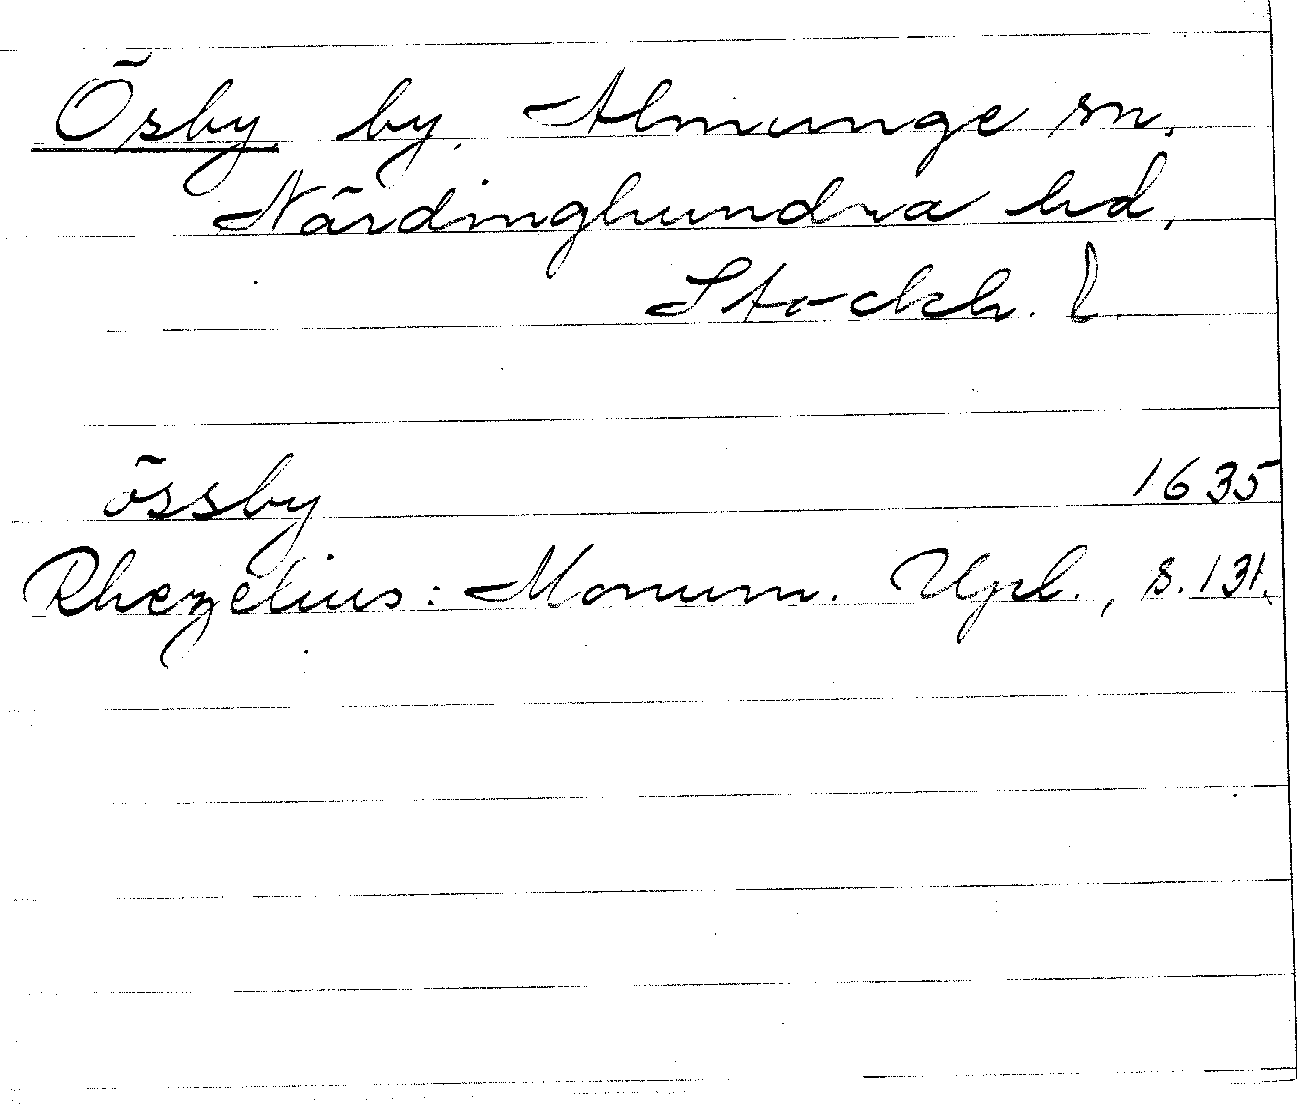 Ösby by, Almunge sn,
Närdinghundra hd,
Stockh. l.
össby 1635
Rhezelius: Monum. Upl., s. 131.